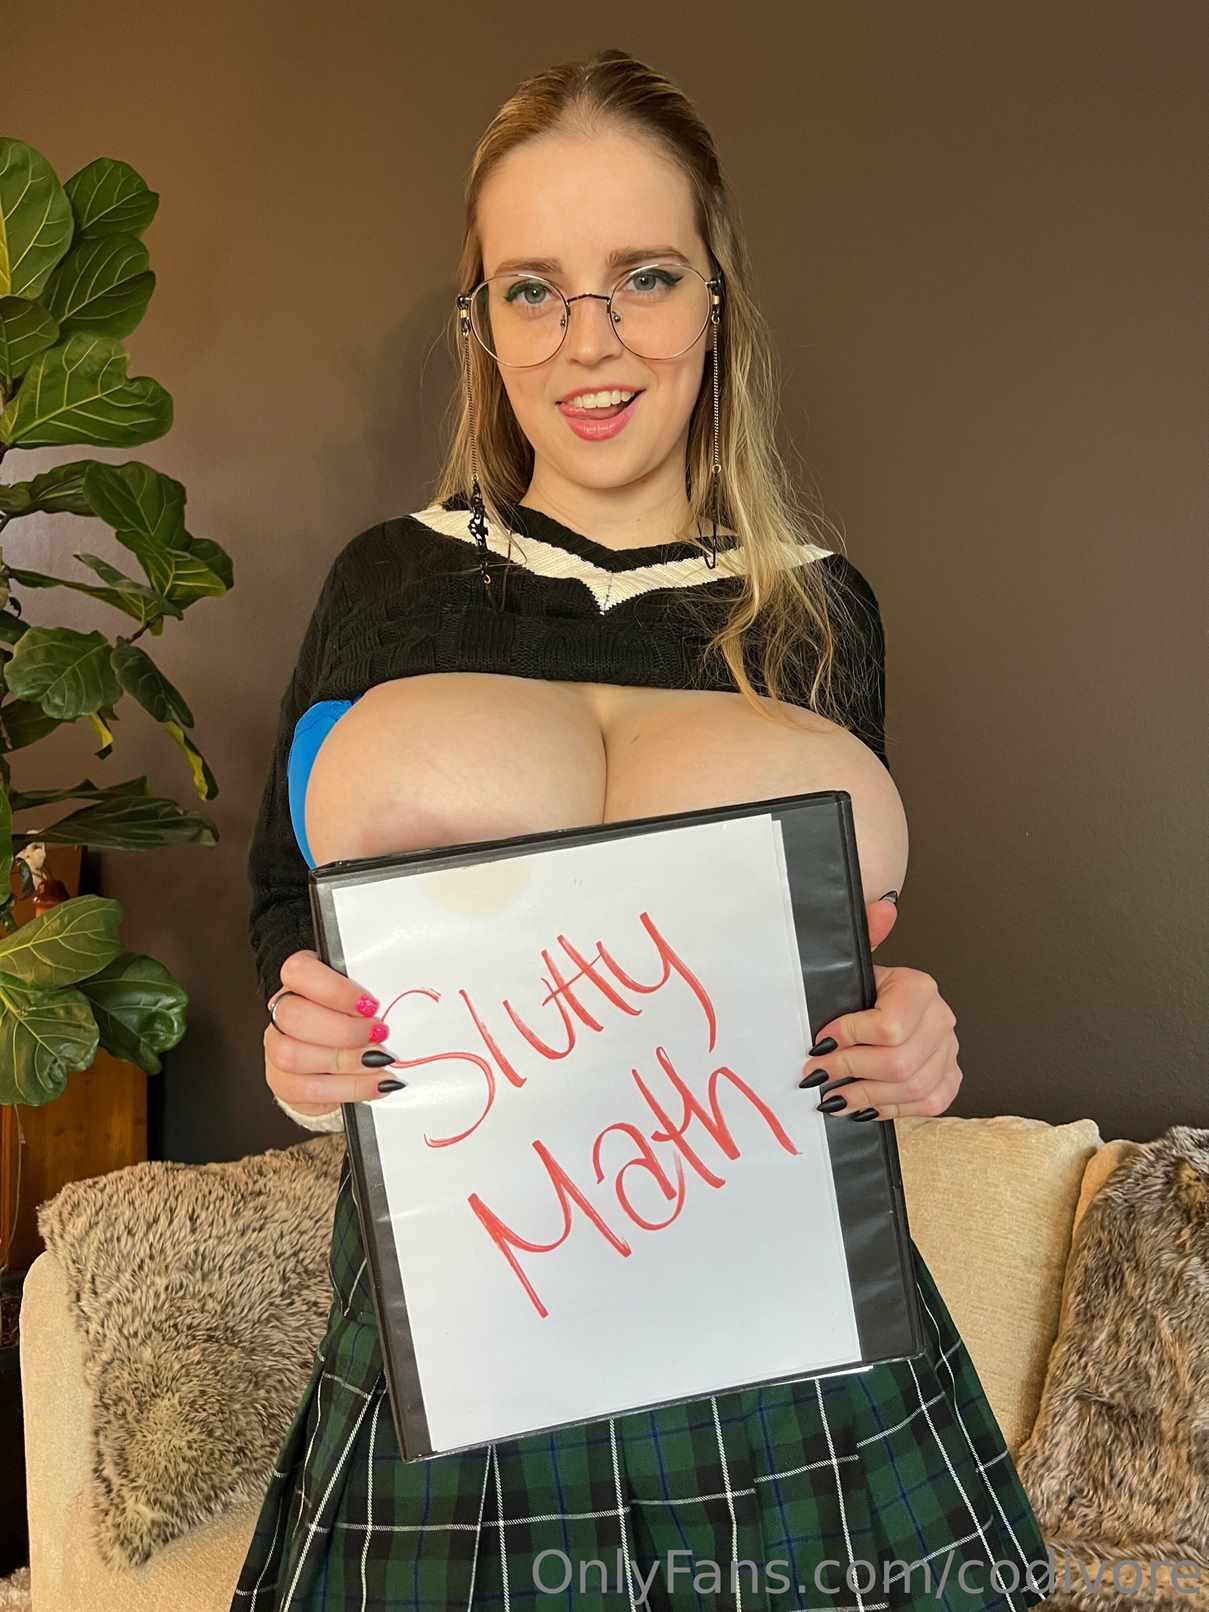 Slutty
Math
OnlyFans.com/codivore